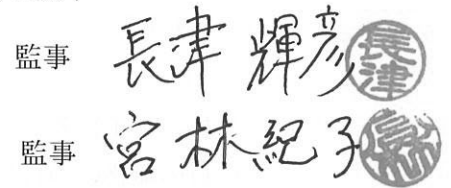 監事 長津 輝彦 長津
監事 宮林紀子